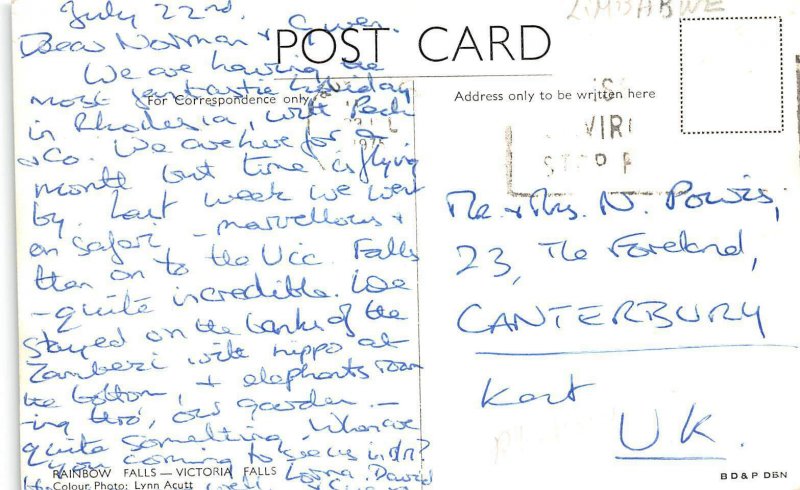 July 22nd.
ZIMBABWE
Dear Norman & Gwen.
POST CARD
We are having the
most fantastic holiday
For Correspondence only
Address only to be written here
in Rhodesia, with
& Co. We are here for a
month but time is flying
by. Last week we went
on safari - marvellous &
then on to the Vic. Falls
- quite incredible. We
stayed on the banks of the
Zambezi with hippo at
the bottom, & elephants roam
-ing thro' our garden -
quite something. When are
you coming to see us in
Lorna. David
RAINBOW FALLS — VICTORIA FALLS
Colour Photo: Lynn Acutt
Mr. & Mrs. N. Powis,
23, The Foreland,
CANTERBURY
Kent
UK.
BD & P DBN